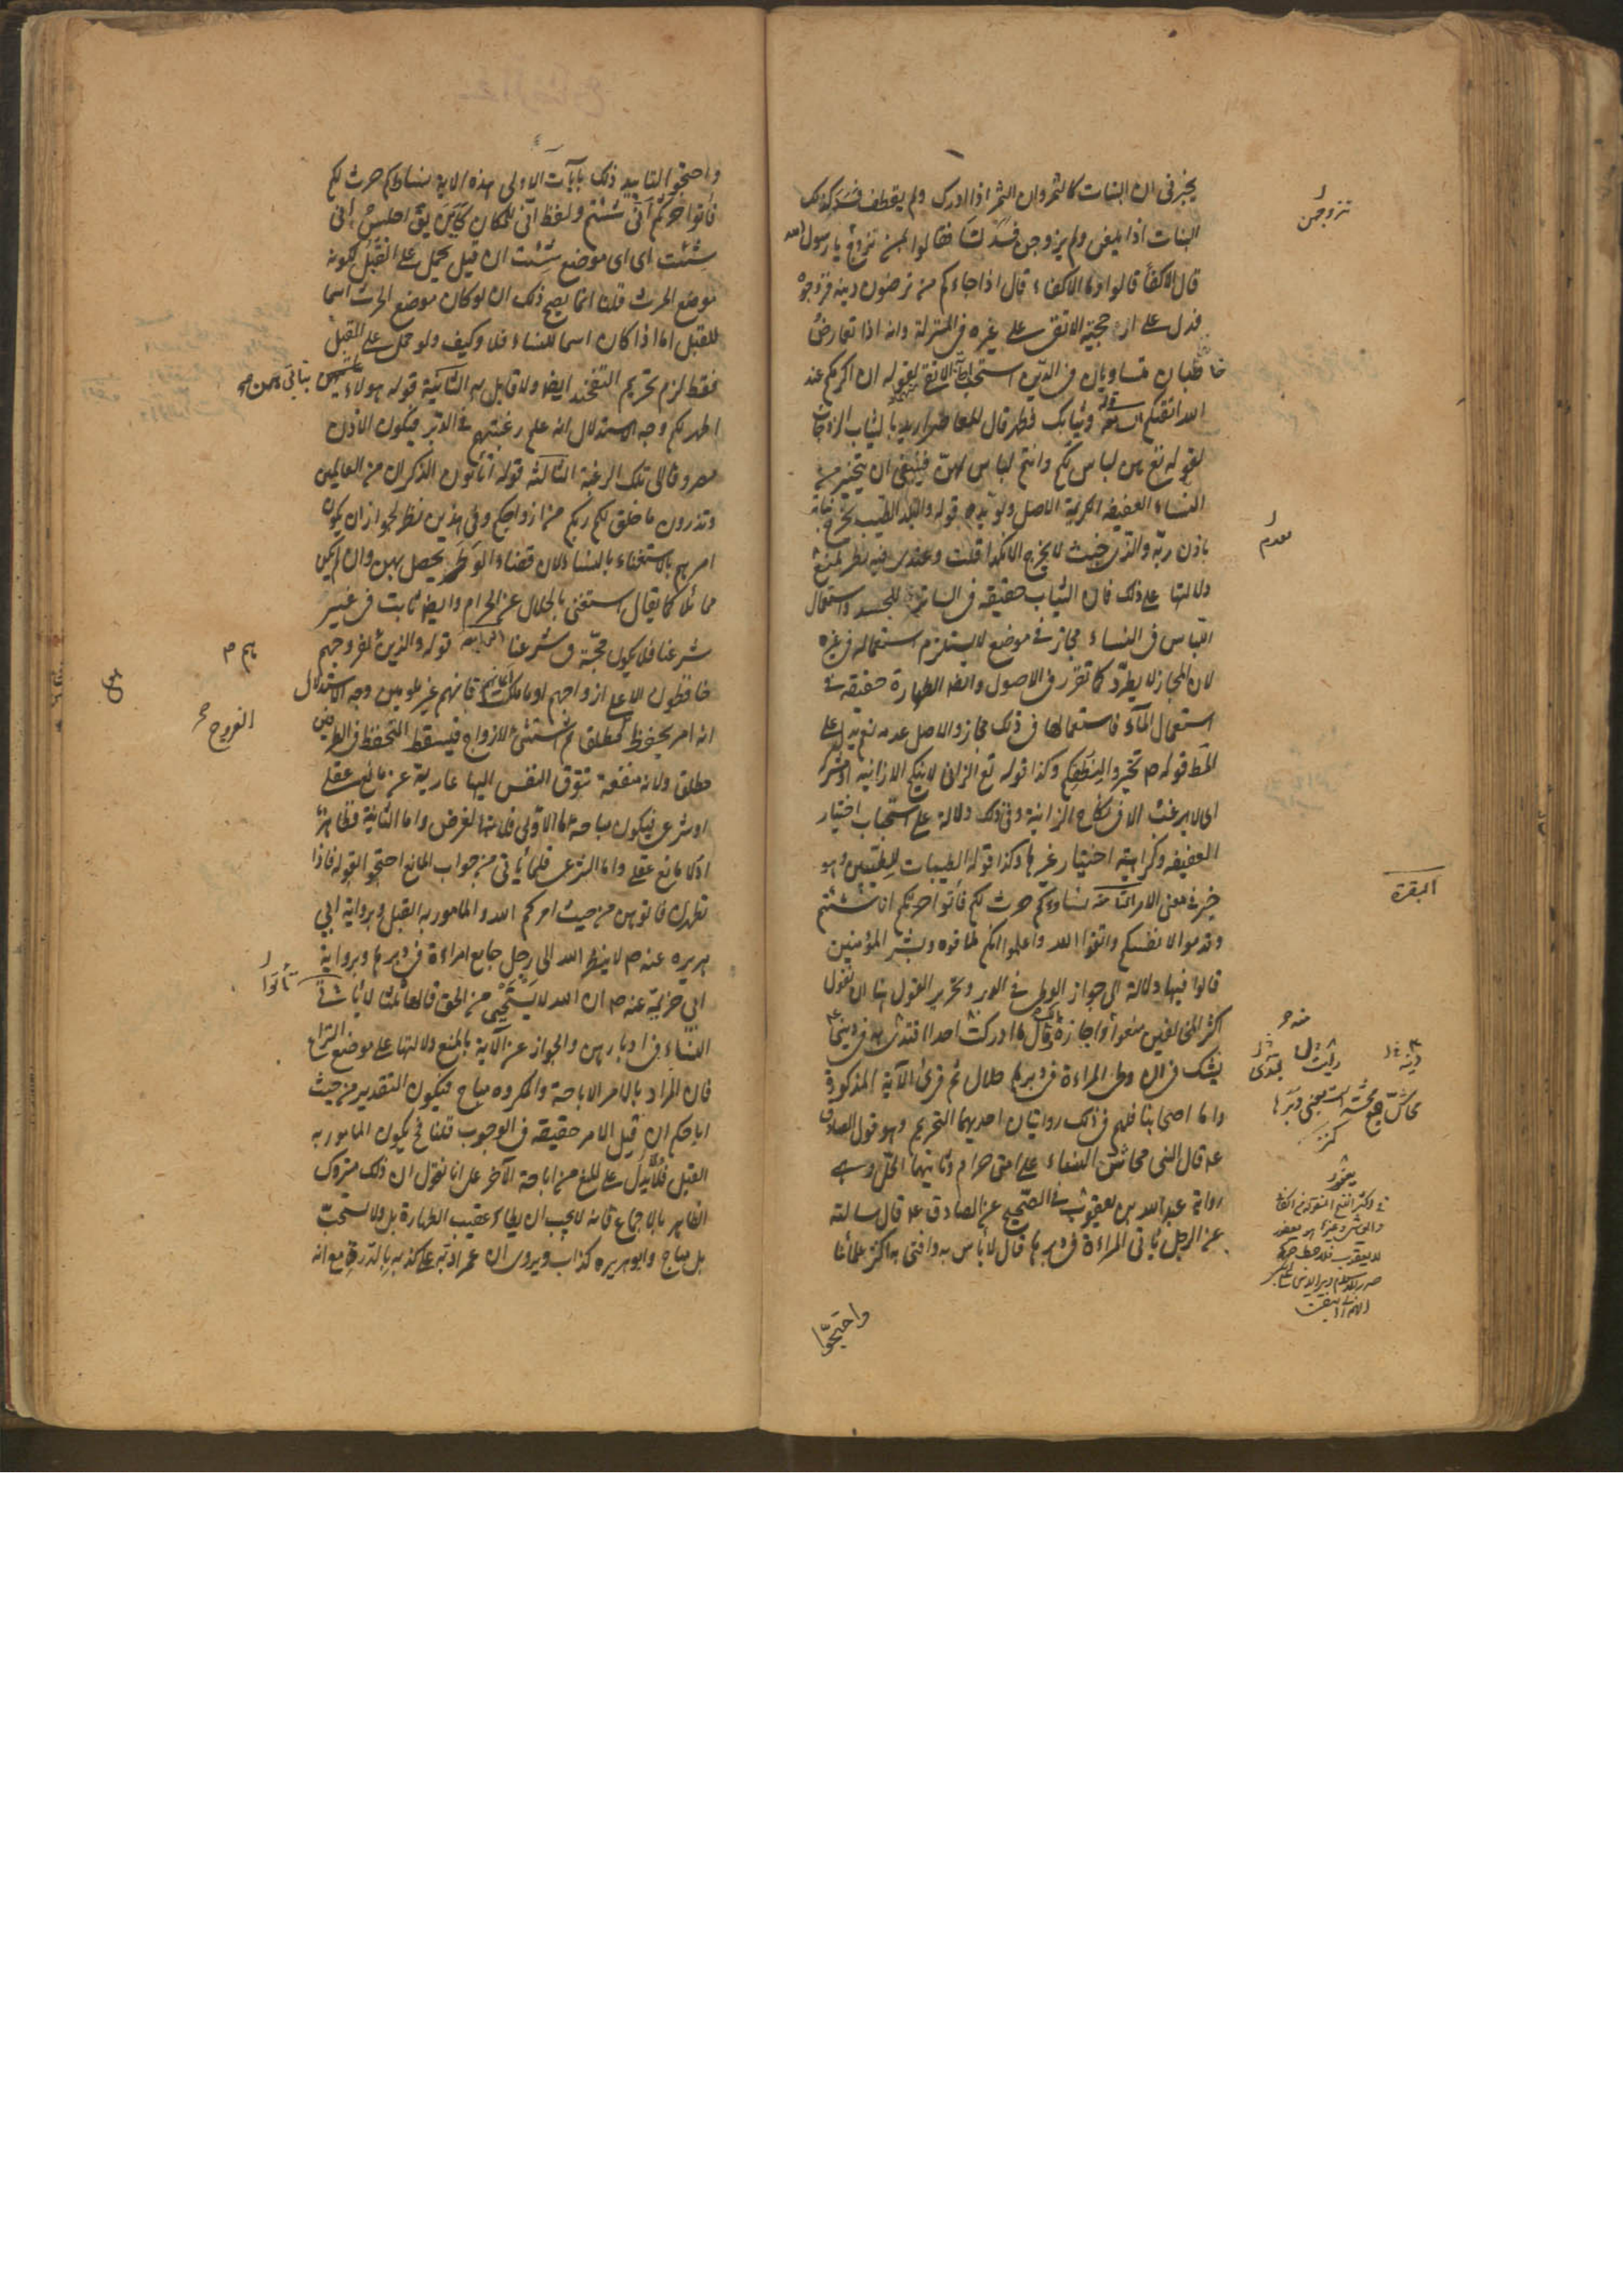 يخبرنى ان البنات كالثمر وان الثمر اذا ادرك ولم يقطف فسد كذلك
البنات اذا بلغن ولم يزوجن فسدن فقالوا لمن نزوج يا رسول الله
قال الاكفاء قالوا وما الاكفاء قال اذا جاءكم من ترضون دينه فزوجوه
فدل على ارجحية الاتقى على غيره فى المنزلة وانه اذا تعارض
خاطبان متساويان فى الدين استحب اجابة الاتقى لقوله ان اكرمكم عند
الله اتقيكم وثيابك فطهر قال المعاصر اريد بالثياب الزوجات
لقوله تع هن لباس لكم وانتم لباس لهن فينبغى ان يتخير من
النساء العفيفة الكريمة الاصل ويؤيده قوله والبلد الطيب يخرج نباته
باذن ربه والذى خبث لا يخرج الا نكدا قلت وعندى فيه نظر لمنع
دلالتها على ذلك فان الثياب حقيقة فى الساتر للجسد واستعمال
اللباس فى النساء مجاز فى موضع لا يستلزم استعماله فى غيره
لان المجاز لا يطرد كما تقرر فى الاصول وايضا الطهارة حقيقة فى
استعمال الماء فاستعمالها فى ذلك مجاز والاصل عدمه نعم يدل على
المط قوله ص تخيروا لنطفكم وكذا قوله تع الزانى لا ينكح الا زانية او مشركة
اى لا يرغب الا فى نكاح الزانية وفى ذلك دلالة على استحباب اختيار
العفيفة وكراهية اختيار غيرها وكذا قوله الطيبات للطيبين وهو
خبر فى معنى الامر الثامنة نساؤكم حرث لكم فأتوا حرثكم انى شئتم
وقدموا لانفسكم واتقوا الله واعلموا انكم ملاقوه وبشر المؤمنين
قالوا فيها دلالة الى جواز الوطى فى الدبر وتحرير القول هنا ان نقول
اكثر المخالفين منعوا واجازه مالك وقال ما ادركت احدا اقتدى به فى دينى
يشك فى ان وطى المراءة فى دبرها حلال ثم قرئ الآية المذكورة
واما اصحابنا فلهم فى ذلك روايتان احديهما التحريم وهو قول الصادق
عه قال النبى محاش النساء على امتى حرام وثانيتهما الحل وهى
رواية عبد الله بن يعفور فى الصحيح عن الصادق عه قال سالته
عن الرجل يأتى المراءة فى دبرها قال لا باس به وافتى به اكثر علمائنا
واحتجوا
تزوجهن
البقرة
محاش جمع محشة است بمعنى دبرها
كنز
يعفور
واحتجوا لتاييد ذلك بآيات الاولى هذه الاية نساؤكم حرث لكم
فأتوا حرثكم انى شئتم ولفظ انى للمكان كاين يق اجلس انى
شئت اى اى موضع شئت ان قيل يحمل على القبل لكونه
موضع الحرث قلنا انما يصح ذلك ان لو كان موضع الحرث اسما
للقبل اما اذا كان اسما للنساء فلا وكيف ولو حمل على القبل
فقط لزم تحريم التفخيذ ايضا ولا قايل به الثانية قوله هولاء بناتى هن
اطهر لكم وجه الاستدلال انه علم رغبتهم فى الدبر فيكون الاذن
مصروفا الى تلك الرغبة الثالثة قوله أتأتون الذكران من العالمين
وتذرون ما خلق لكم ربكم من ازواجكم وفى هذين نظر لجواز ان يكون
امرهم بالاستغناء بالنساء لان قضاء الوطر يحصل بهن وان لم يكن
مماثلا كما يقال استغنى بالحلال عن الحرام وايضا ثابت فى غير
شرعنا فلا يكون حجة فى شرعنا الرابعة قوله والذين هم لفروجهم
حافظون الا على ازواجهم او ما ملكت ايمانهم فانهم غير ملومين وجه الاستدلال
انه امر بحفظ مطلق ثم استثنى الازواج فيسقط التحفظ فى الطرفين
مطلق ولانه منفعة تتوق النفس اليها عارية عن مانع عقلى
او شرعى فيكون مباحة اما الاولى فلانها الغرض واما الثانية فظاهرة
اذ لا مانع عقلى واما الشرعى فلما يأتى من جواب المانع احتجوا بقوله فاذا
تطهرن فاتوهن من حيث امركم الله والمامور به القبل وبرواية ابى
هريره عنه ص لا ينظر الله الى رجل جامع امراءة فى دبرها وبرواية
ابى خزيمة عنه ص ان الله لا يستحيى من الحق قالها ثلاثا لا تأتوا
النساء فى ادبارهن والجواز عن الآية بالمنع دلالتها على موضع النزاع
فان المراد بالامر الاباحة والمكروه مباح فيكون التقدير من حيث
اباحكم ان قيل الامر حقيقة فى الوجوب قلنا فح يكون المامور به
القبل فلا يدل على المنع من اباحة الآخر على انا نقول ان ذلك متروك
الظاهر بالاجماع فانه لا يجب ان يطاء عقيب الطهارة بل ولا تستحب
بل مباح وابو هريره كذاب ويروى ان عمر ادبه على كذبه بالدرة مع انه
هم ص
الفروج
تأتوا